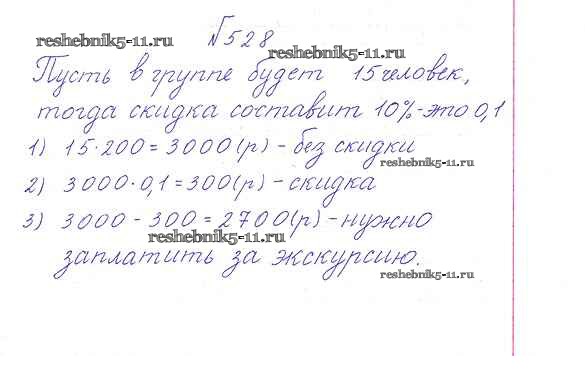 reshebnik5-11.ru
№528
reshebnik5-11.ru
Пусть в группе будет 15 человек,
тогда скидка составит 10%-это 0,1
1) 15·200=3000(р) - без скидки
reshebnik5-11.ru
2) 3000·0,1=300(р) - скидка
3) 3000 - 300 = 2700(р) - нужно
reshebnik5-11.ru
заплатить за экскурсию.
reshebnik5-11.ru